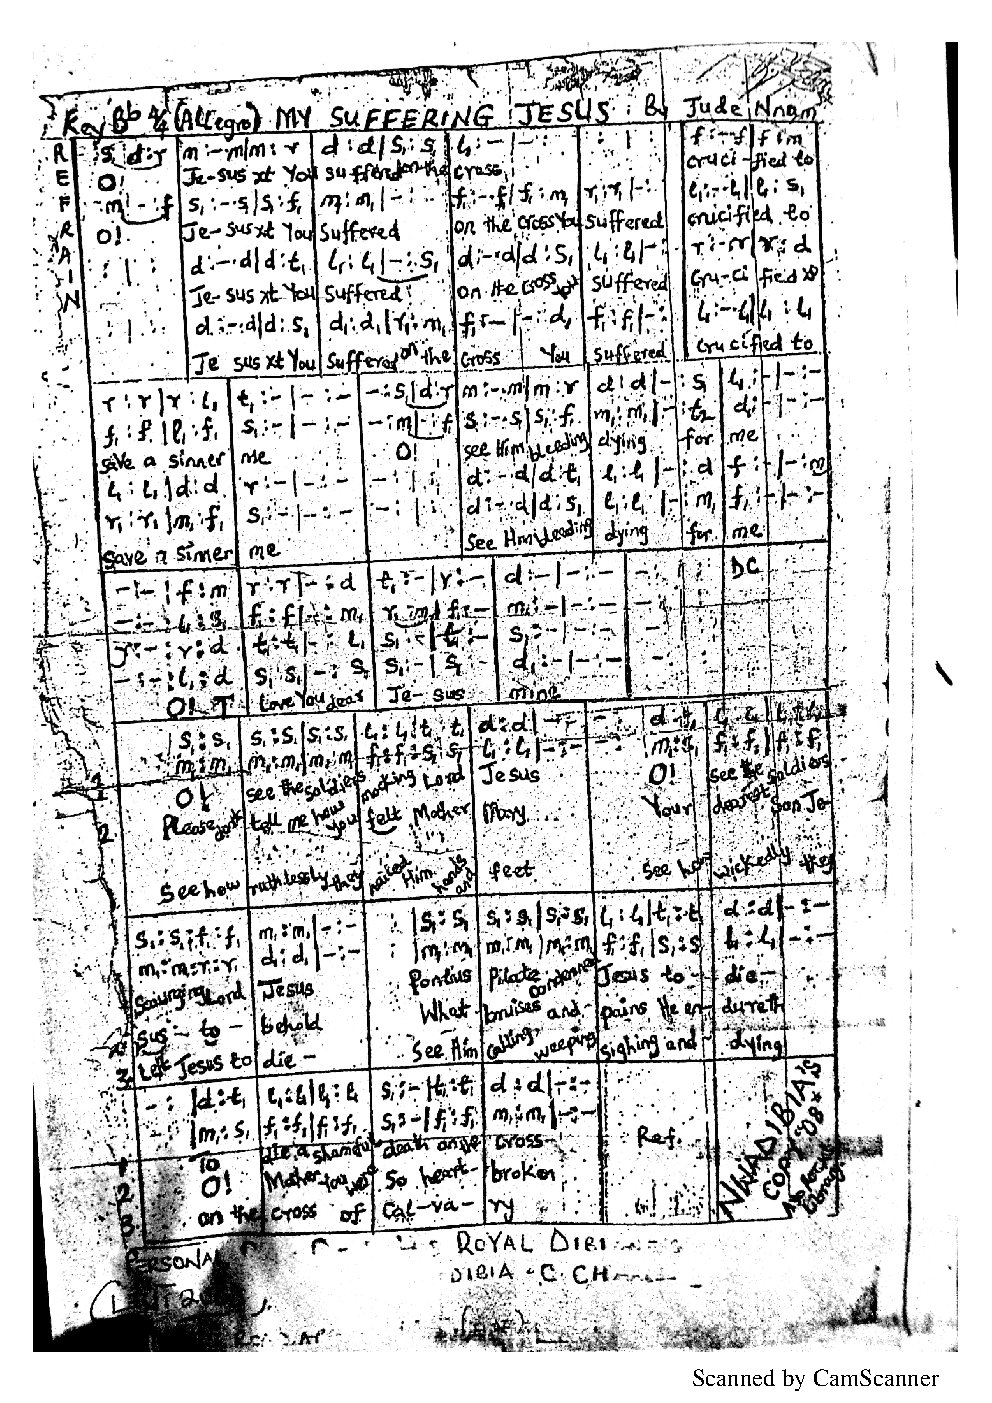 Key Bb 4/4 (Allegro) MY SUFFERING JESUS By Jude Nnam
REFRAIN
s₁ d:r m:-:m|m:r d:d|s₁:s₁ l₁:-|-:- : | : f:-:f|f:m
O! Je-sus xt You suffered on the cross, cruci-fied to
m|-:f s₁:-:s₁|s₁:f₁ m₁:m₁|-:- f₁:-:f₁|f₁:m₁ r₁:r₁|-:- l₁:-:l₁|l₁:s₁
O! Je-sus xt You suffered on the cross You suffered crucified to
: | : d:-:d|d:t₁ l₁:l₁|-:s₁ d:-:d|d:s₁ l₁:l₁|-: r:-:r|r:d
Je-sus xt You suffered on the cross you suffered Cru-ci fied to
: | : d:-:d|d:s₁ d₁:d₁|r₁:m₁ f₁:-|-:d₁ f₁:f₁|-: l₁:-:l₁|l₁:l₁
Je sus xt You Suffered on the cross You suffered crucified to
r:r|r:l₁ t₁:-|-:- -:s₁|d:r m:-:m|m:r d:d|-:s₁ l₁:-|-:-
f₁:f₁|l₁:f₁ s₁:-|-:- -:m|-:f s₁:-:s₁|s₁:f₁ m₁:m₁|-:t₂ d₁:-|-:-
save a sinner me O! see Him bleeding dying for me
l₁:l₁|d:d r:-|-:- d:-:d|d:t₁ l₁:l₁|-:d f:-|-:m
r₁:r₁|m₁:f₁ s₁:-|-:- d:-:d|d:s₁ l₁:l₁|-:m₁ f₁:-|-:-
save a sinner me See Him bleeding dying for me
-:-|f:m r:r|-:d t₁:-|r:- d:-|-:- -: DC
-:-|l₁:s₁ f₁:f₁|-:m₁ r₁:m₁|f₁:- m₁:-|-:- -:
-:-|r:d t₁:t₁|-:l₁ s₁:-|t₁:- s₁:-|-:- -:
-:-|l₁:d s₁:s₁|-:s₁ s₁:-|s₁:- d₁:-|-:- -:
O! I Love You dear Je-sus mine
s₁:s₁ s₁:s₁|s₁:s₁ l₁:l₁|t₁:t₁ d:d|-:- -: d:t₁ l₁:l₁|l₁:l₁
m₁:m₁ m₁:m₁|m₁:m₁ f₁:f₁|s₁:s₁ l₁:l₁|-:- m₁:s₁ f₁:f₁|f₁:f₁
1 O! see the soldiers mocking Lord Jesus O! see the soldiers
2 Please tell me how you felt Mother Mary Your dearest son Je-
See how ruthlessly they nailed Him hands and feet See how wickedly they
s₁:s₁|f₁:f₁ m₁:m₁|-:- |s₁:s₁ s₁:s₁|s₁:s₁ l₁:l₁|t₁:t₁ d:d|-:-
m₁:m₁|r₁:r₁ d₁:d₁|-:- |m₁:m₁ m₁:m₁|m₁:m₁ f₁:f₁|s₁:s₁ l₁:l₁|-:-
Scourging Lord Jesus Pontius Pilate condemned Jesus to - die-
2 sus - to - behold What - bruises and - pains He en- dureth
3 Left Jesus to die - See Him calling, weeping sighing and - dying
-:|d:t₁ l₁:l₁|l₁:l₁ s₁:-|t₁:t₁ d:d|-:-
|m₁:s₁ f₁:f₁|f₁:f₁ s₁:-|f₁:f₁ m₁:m₁|-:- Ref.
1 To die a shameful death on the cross-
2 O! Mother You were So heart- broken
3 on the cross of Cal-va- ry
NWADIBIA'S
COPY '08
PERSONAL
ROYAL
DIBIA
Scanned by CamScanner